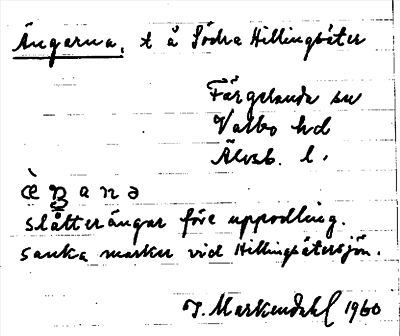 Ängarna, t å Södra Hillingsäter
Färgelanda sn
Valbo hd
Älvsb. l.
æ̀ŋana
slåtterängar före uppodling.
sanka marker vid Hillingsätersjön.
J. Markendahl 1960